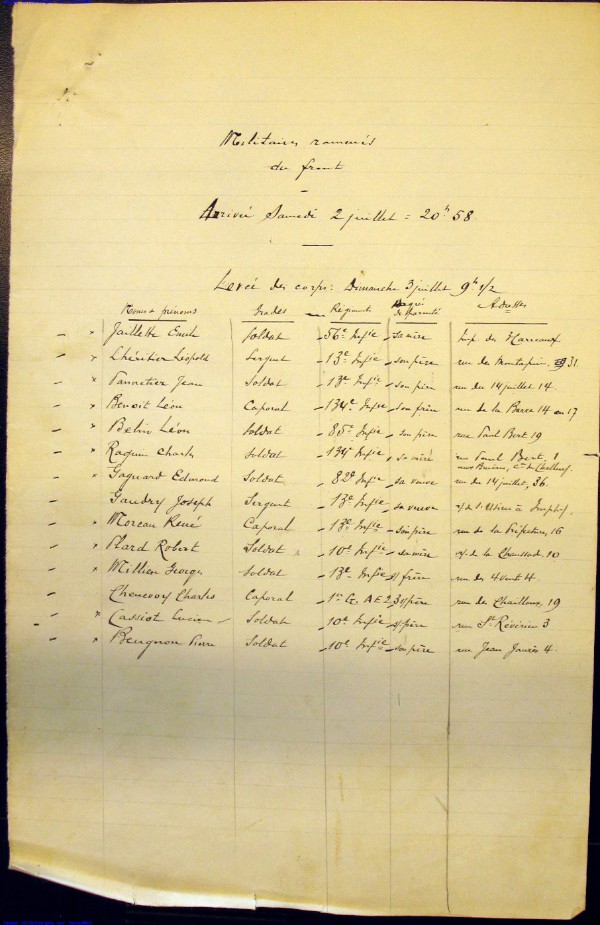 Militaires ramenés
du front
Arrivée Samedi 2 juillet = 20h 58
Levée des corps: Dimanche 3 juillet 9h 1/2
Noms & prénoms Grades Régiments Degrés de Parenté Adresses
Jaillette Emile Soldat 56e Inf.ie sa mère Imp. des
Lhéritier Léopold Sergent 13e Inf.ie son père rue de Montapins 31
Jean Soldat 13e Inf.ie son père rue du 14 juillet 14.
Benoit Léon Caporal 134e Inf.ie son frère rue de la Barre 14 ou 17
Belin Léon Soldat 85e Inf.ie son père rue Paul Bert 19
Raquin Charles Soldat 134e Inf.ie sa mère rue Paul Bert, 1
Gaquard Edmond Soldat 82e Inf.ie sa veuve rue du 14 juillet, 36.
Gaudry Joseph Sergent 13e Inf.ie sa veuve r. de l'Usine à Imphy
Moreau René Caporal 13e Inf.ie son père rue de la Préfecture, 16
Plard Robert Soldat 10e Inf.ie sa mère de la Chaussade, 10
Millien Georges Soldat 13e Inf.ie s/ frère rue des 4 vents 4.
Charles Caporal 1er G. A E 2 s/père rue des Chailloux, 19
Cassiot Lucien Soldat 10e Inf.ie s/père rue St Révérien 3
Beugnon Pierre Soldat 10e Inf.ie son père rue Jean Jaurès 4.